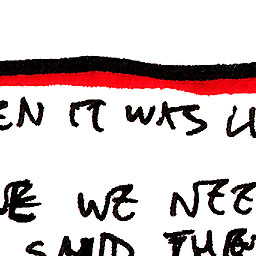 EN IT WAS
WE NEE
SAID THE